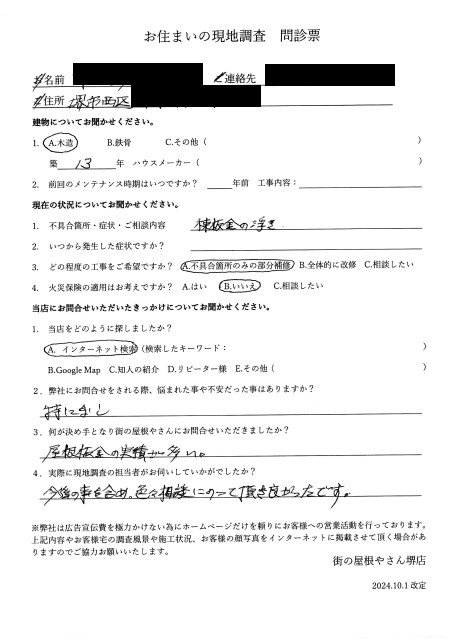 お住まいの現地調査　問診票
お名前
ご連絡先
ご住所 堺市西区
建物についてお聞かせください。
1. A.木造　B.鉄骨　C.その他（　）
築 13 年　ハウスメーカー（　）
2. 前回のメンテナンス時期はいつですか？　年前　工事内容：
現在の状況についてお聞かせください。
1. 不具合箇所・症状・ご相談内容 棟板金の浮き
2. いつから発生した症状ですか？
3. どの程度の工事をご希望ですか？ A.不具合箇所のみの部分補修 B.全体的に改修 C.相談したい
4. 火災保険の適用はお考えですか？ A.はい B.いいえ C.相談したい
当店にお問合せいただいたきっかけについてお聞かせください。
1. 当店をどのように探しましたか？
A. インターネット検索（検索したキーワード：　）
B.Google Map C.知人の紹介 D.リピーター様 E.その他（　）
2．弊社にお問合せをされる際、悩まれた事や不安だった事はありますか？
特になし
3．何が決め手となり街の屋根やさんにお問合せいただきましたか？
屋根板金の実績が多い。
4．実際に現地調査の担当者がお伺いしていかがでしたか？
今後の事を含め、色々相談にのって頂き良かったです。
※弊社は広告宣伝費を極力かけない為にホームページだけを頼りにお客様への営業活動を行っております。
上記内容やお客様宅の調査風景や施工状況、お客様の顔写真をインターネットに掲載させて頂く場合があ
りますのでご協力お願いいたします。
街の屋根やさん堺店
2024.10.1 改定